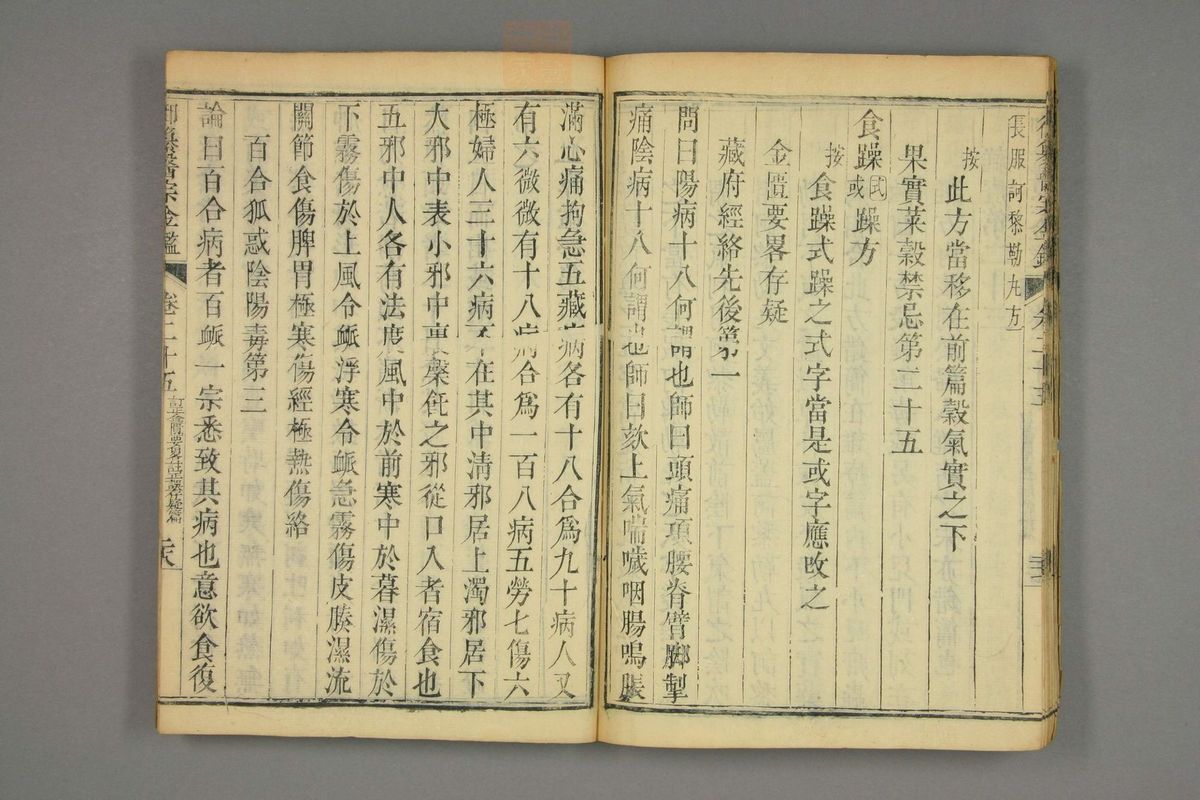 長服訶黎勒丸方
按此方當移在前篇穀氣實之下
果實菜穀禁忌第二十五
食躁式或躁方
按食躁式躁之式字當是或字應改之
金匱要畧存疑
藏府經絡先後第一
問曰陽病十八何謂也師曰頭痛項腰脊臂脚掣
痛陰病十八何謂也師曰欬上氣喘噦咽腸鳴脹
滿心痛拘急五藏病各有十八合爲九十病人又
有六微微有十八病合爲一百八病五勞七傷六
極婦人三十六病不在其中清邪居上濁邪居下
大邪中表小邪中裏槃飪之邪從口入者宿食也
五邪中人各有法度風中於前寒中於暮濕傷於
下霧傷於上風令衇浮寒令衇急霧傷皮腠濕流
關節食傷脾胃極寒傷經極熱傷絡
百合狐惑陰陽毒第三
論曰百合病者百衇一宗悉致其病也意欲食復
御纂醫宗金鑑 卷二十五 訂正金匱要畧註正誤存疑篇